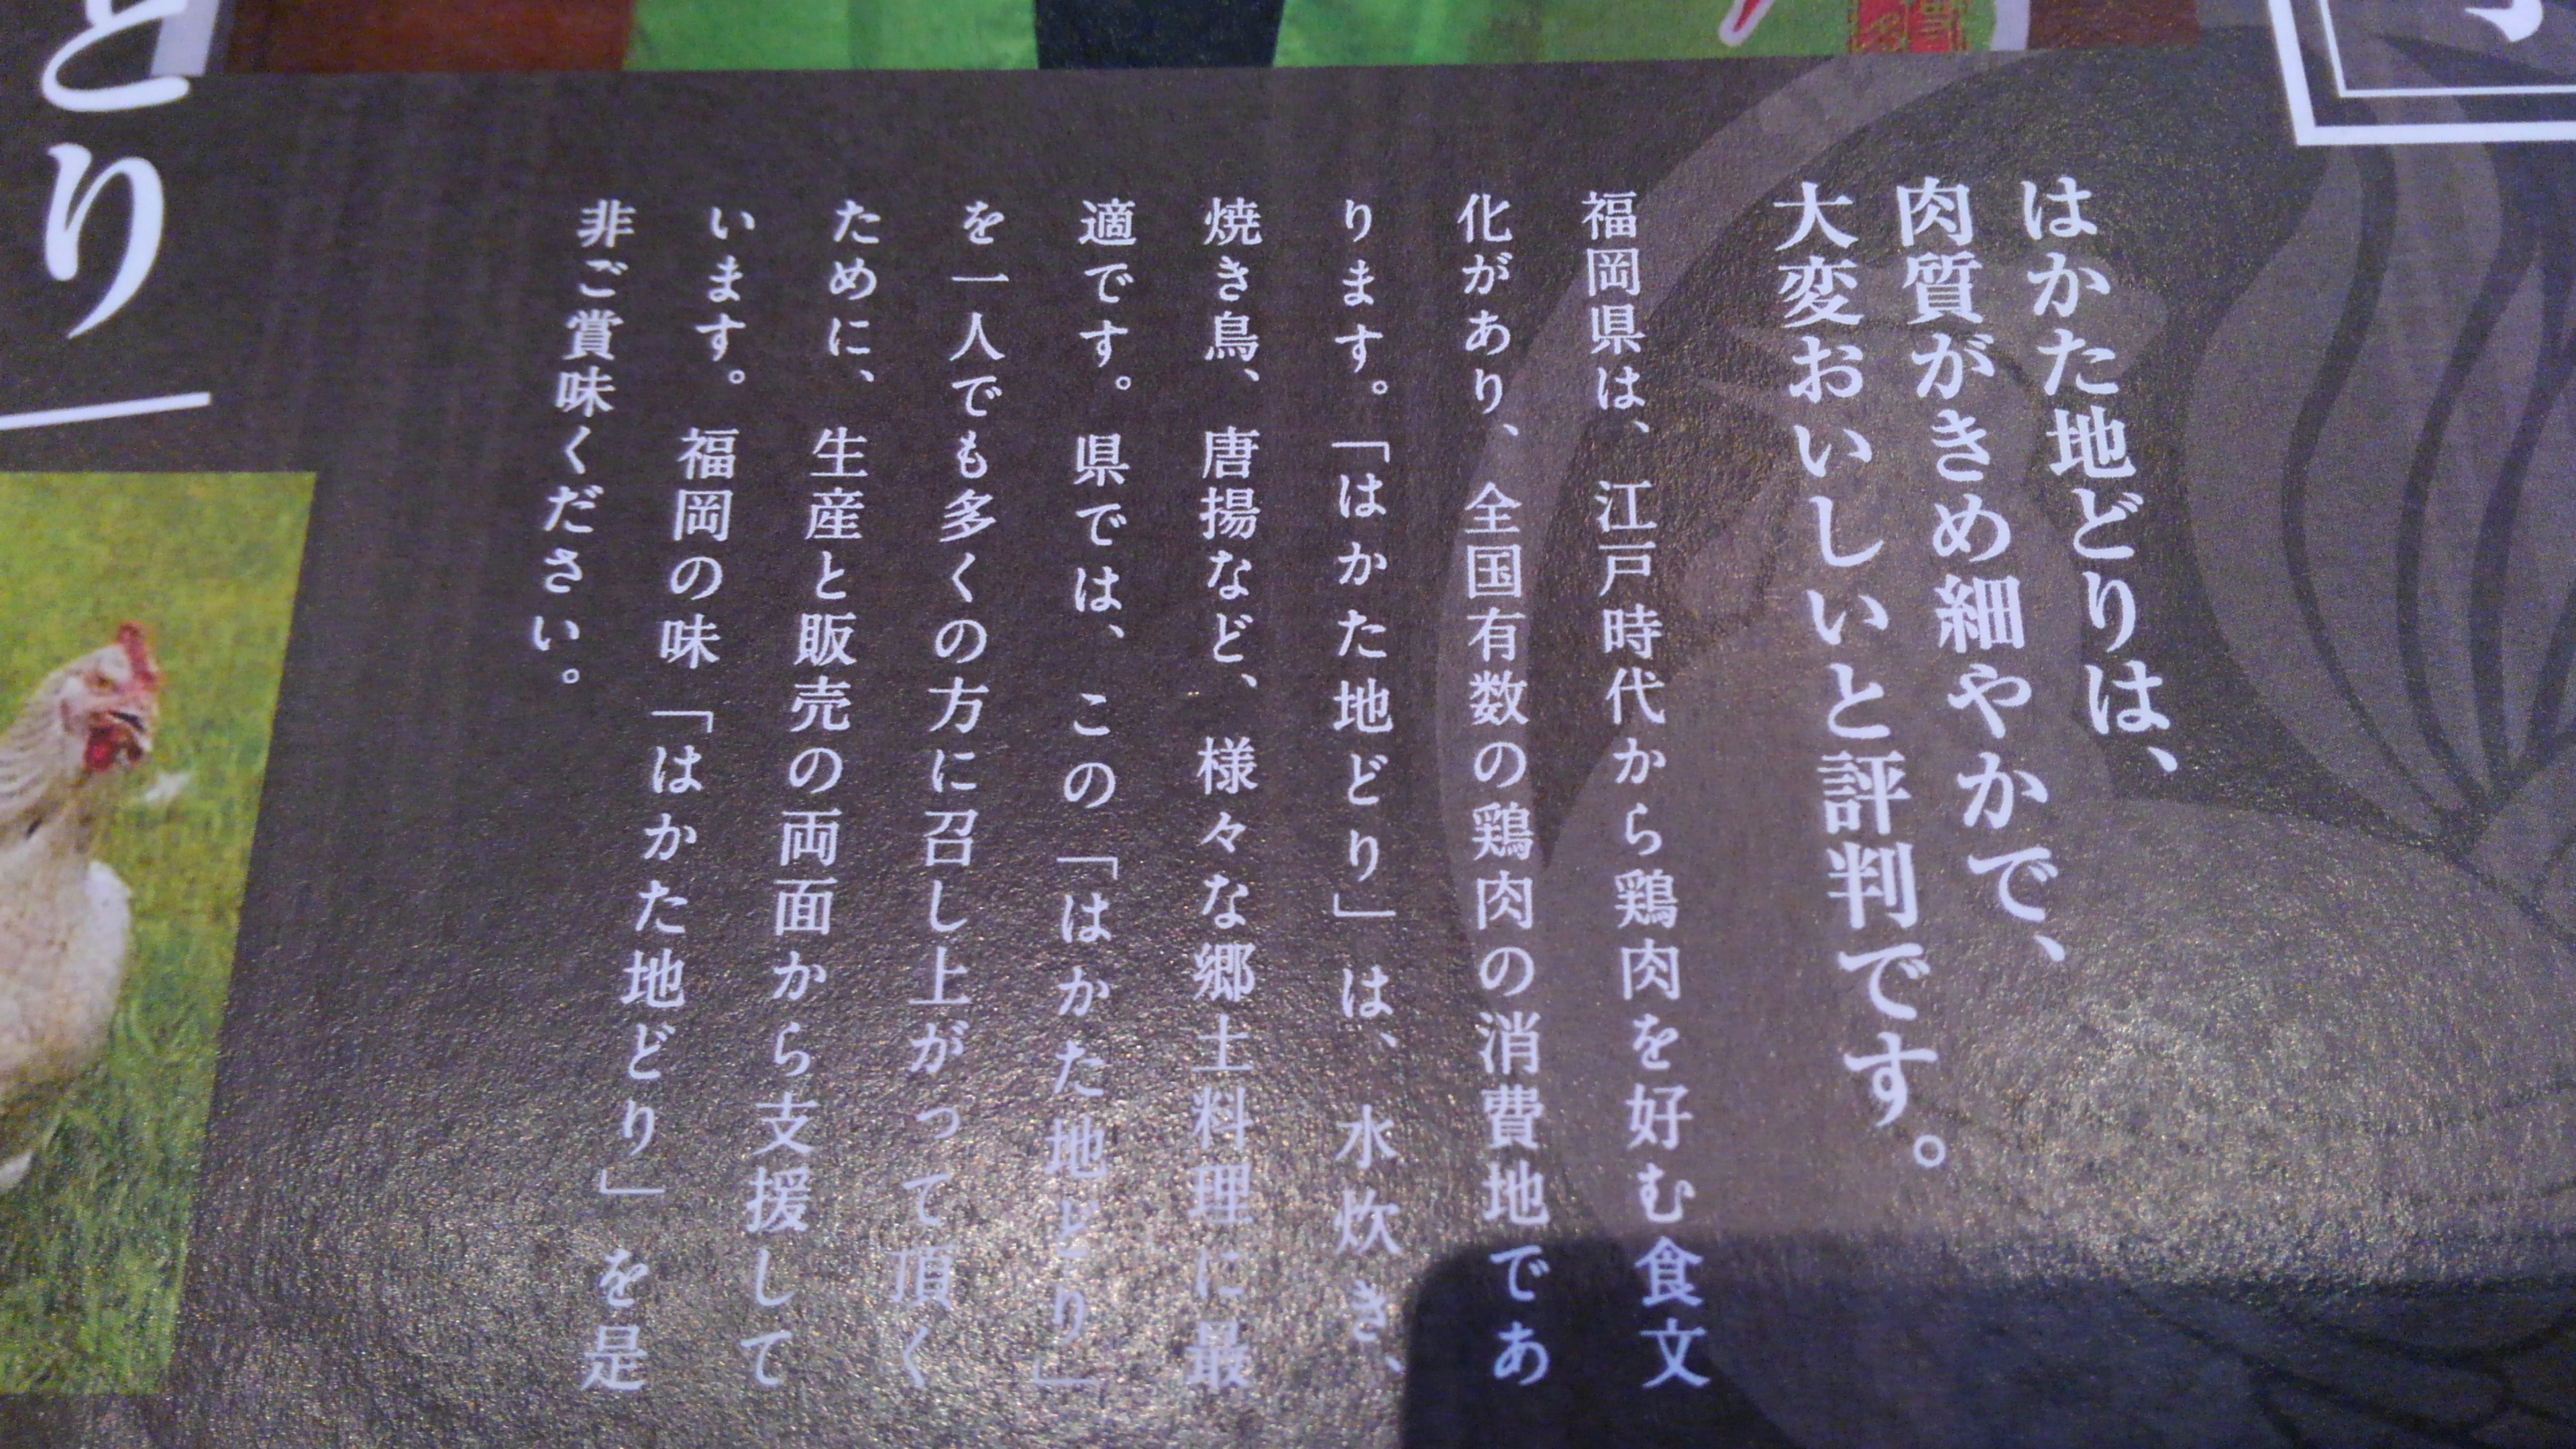 はかた地どりは、
肉質がきめ細やかで、
大変おいしいと評判です。
福岡県は、江戸時代から鶏肉を好む食文
化があり、全国有数の鶏肉の消費地であ
ります。「はかた地どり」は、水炊き、
焼き鳥、唐揚など、様々な郷土料理に最
適です。県では、この「はかた地どり」
を一人でも多くの方に召し上がって頂く
ために、生産と販売の両面から支援して
います。福岡の味「はかた地どり」を是
非ご賞味ください。
どり